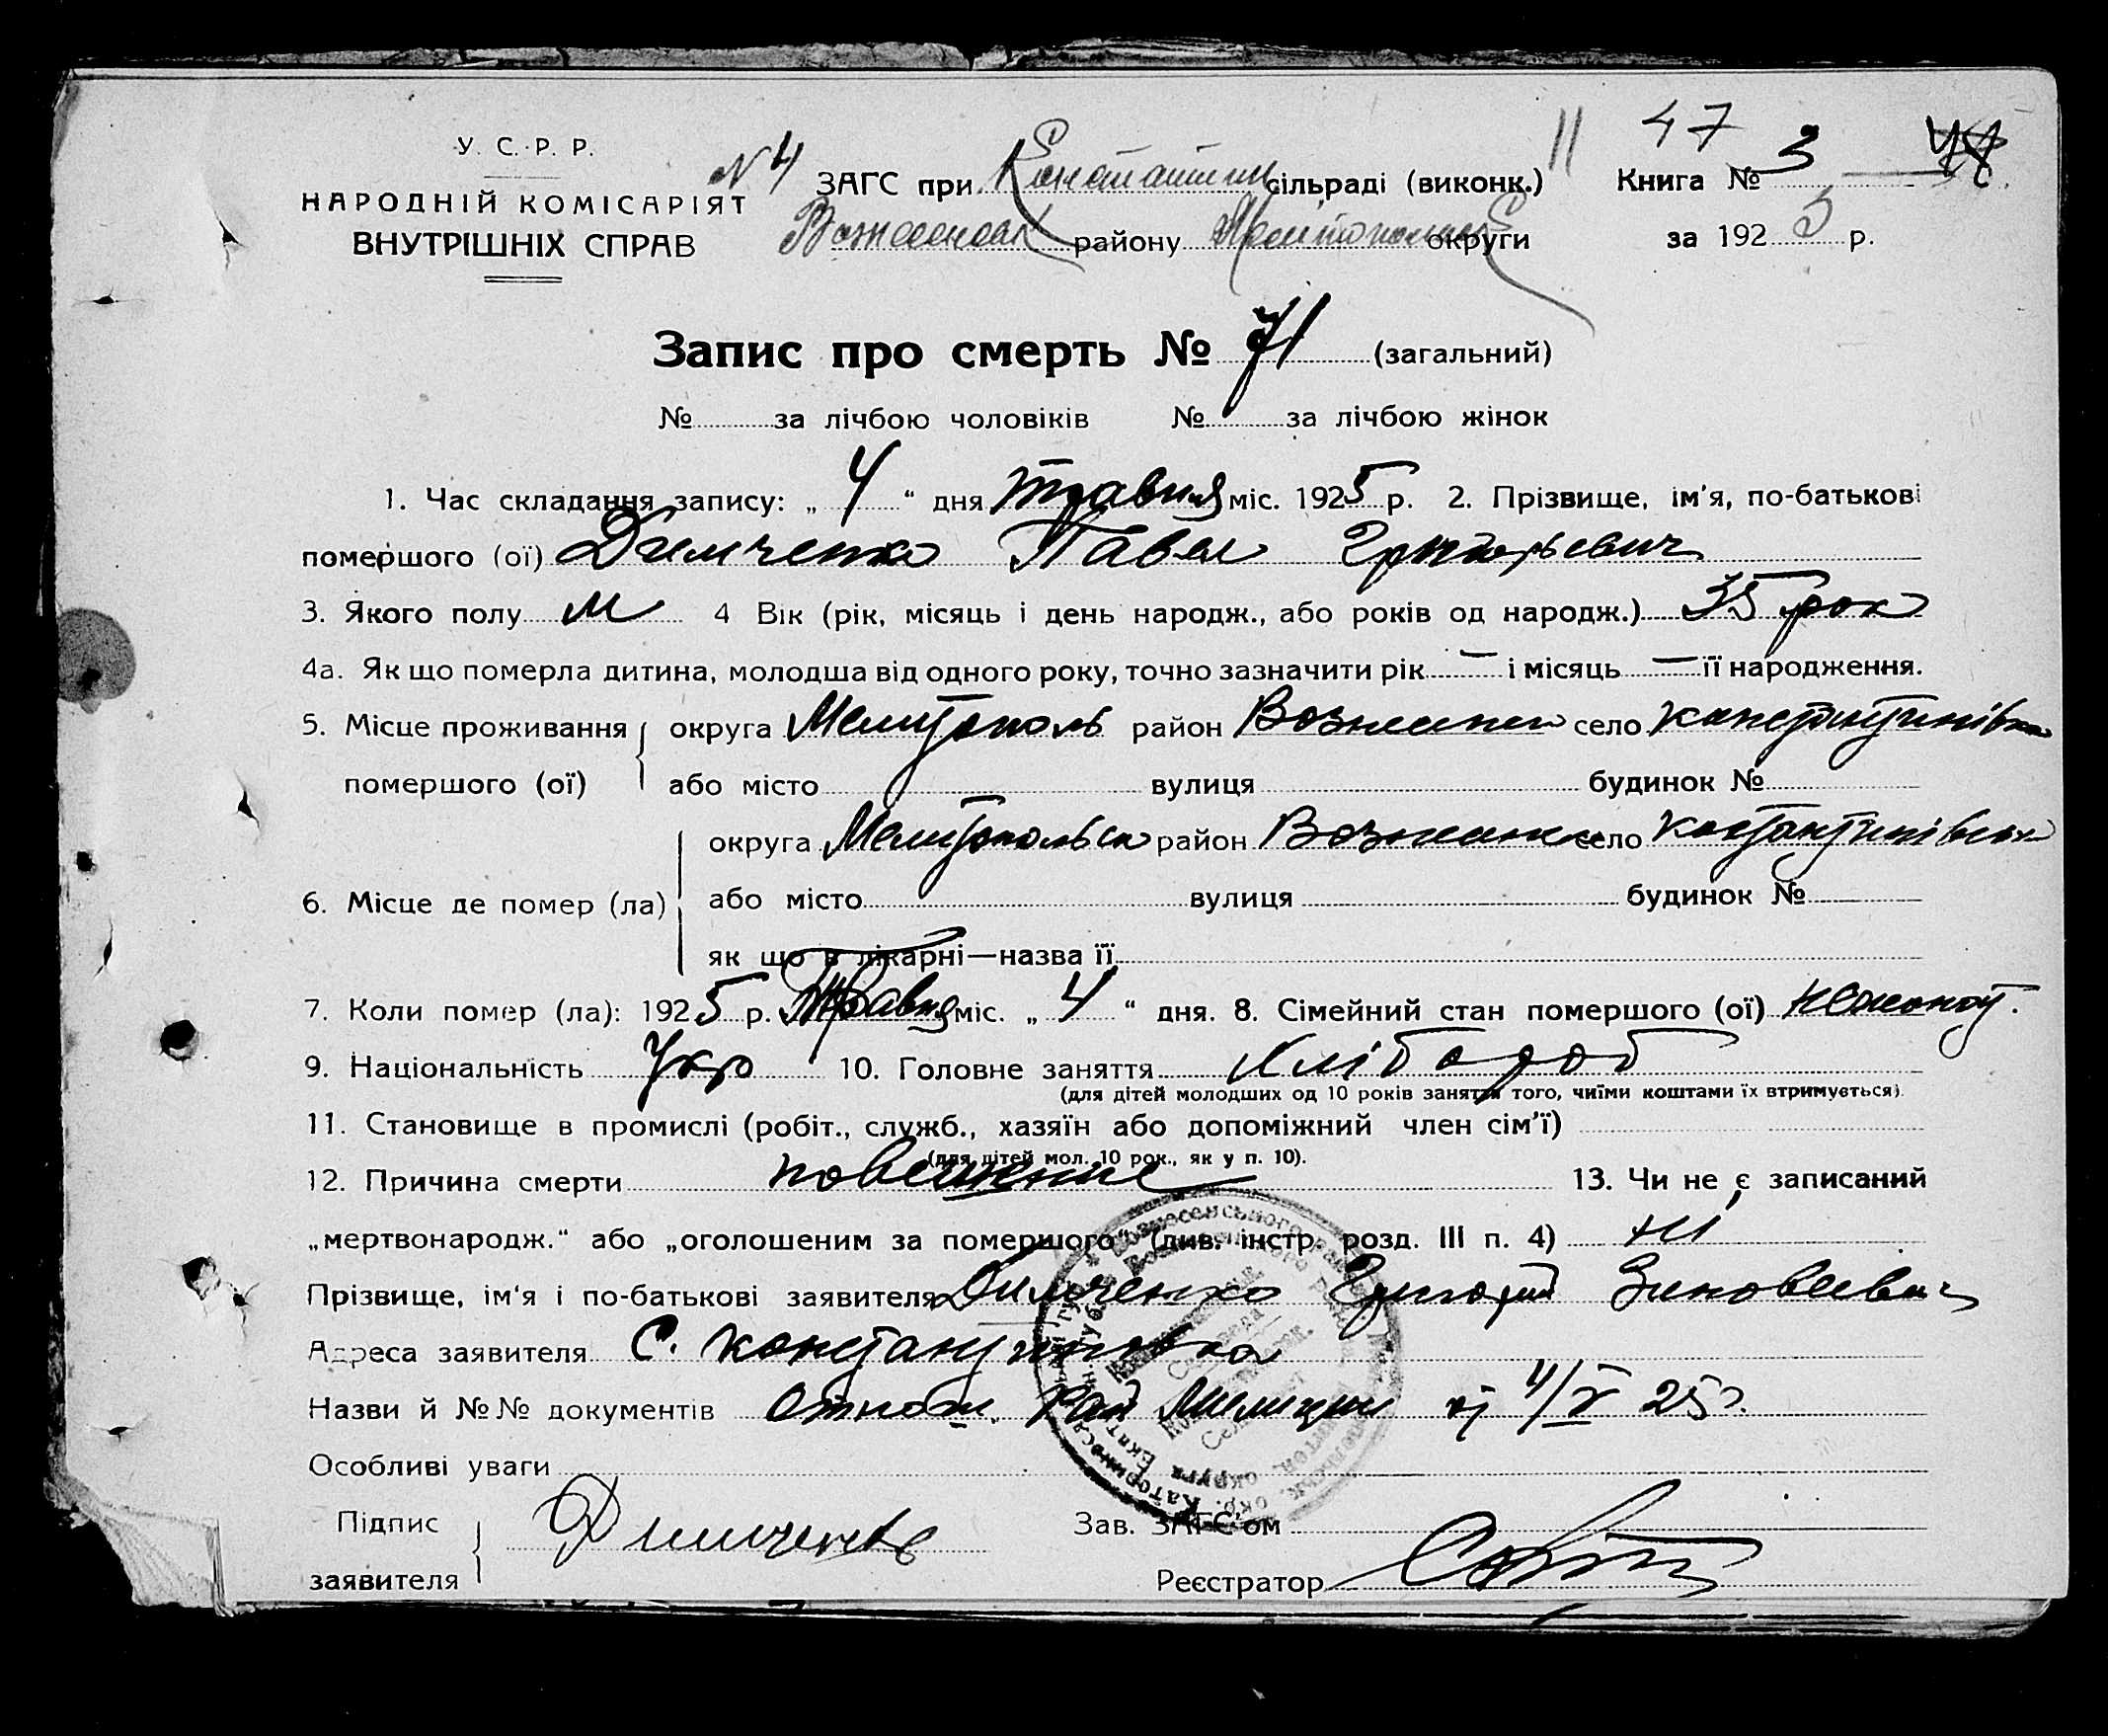 У. С. Р. Р.
НАРОДНІЙ КОМІСАРІЯТ
ВНУТРІШНІХ СПРАВ
N 4 ЗАГС при Константин сільраді (виконк.)
району округи
11 47
Книга № 3
за 1925 р.
Запис про смерть № 71 (загальний)
№ за лічбою чоловіків № за лічбою жінок
1. Час складання запису: „ 4 “ дня травня міс. 1925 р. 2. Прізвище, ім'я, по-батькові
помершого (ої) Димченко Павел Григорьевич
3. Якого полу м 4 Вік (рік, місяць і день народж., або років од народж.) 35 рок
4а. Як що померла дитина, молодша від одного року, точно зазначити рік — і місяць — її народження.
5. Місце проживання округа Мелитополь район село
помершого (ої) або місто вулиця будинок №
округа Мелитопольск район село
6. Місце де помер (ла) або місто вулиця будинок №
як що в лікарні—назва її
7. Коли помер (ла): 1925 р. Травня міс. „ 4 “ дня. 8. Сімейний стан помершого (ої) неженат.
9. Національність Укр 10. Головне заняття Хлібороб
(для дітей молодших од 10 років заняття того, чиїми коштами їх втримується).
11. Становище в промислі (робіт., служб., хазяїн або допоміжний член сім'ї)
(для дітей мол. 10 рок., як у п. 10).
12. Причина смерти повешение 13. Чи не є записаний
„мертвонародж.“ або „оголошеним за помершого“ (див. інстр. розд. III п. 4) ні
Прізвище, ім'я і по-батькові заявителя Димченко Григорий Зиновеевич
Адреса заявителя С. Константиновка
Назви й №№ документів Отнош. Рай Милиции від 4/V 25 г.
Особливі уваги
Підпис Димченко Зав. ЗАГС'ом
заявителя Реєстратор